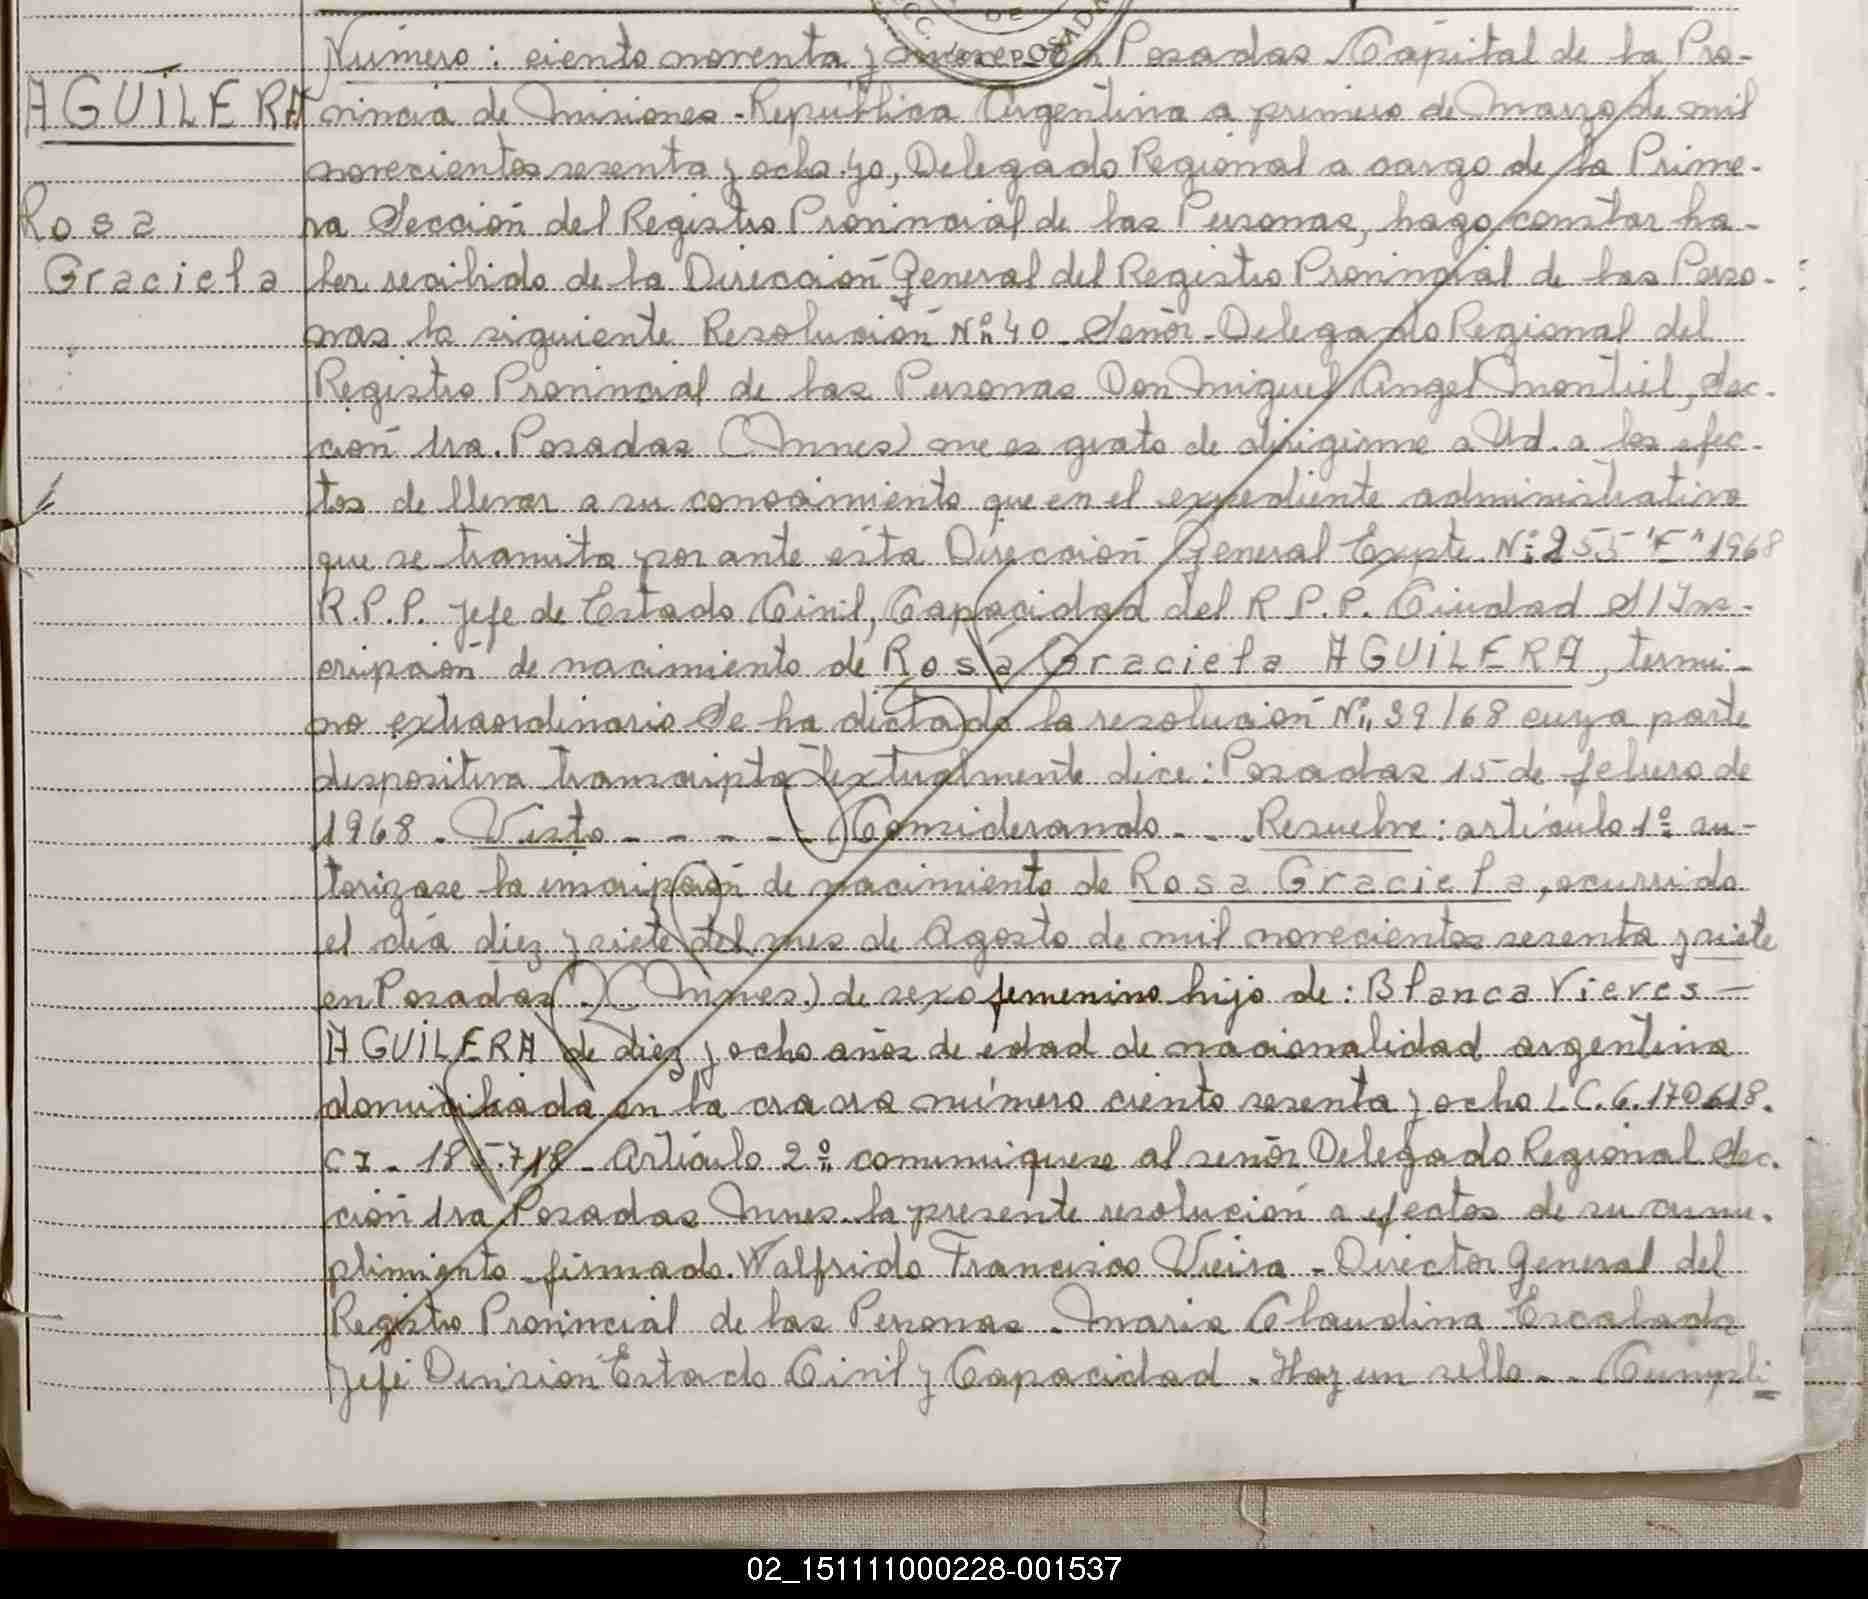 DE
POSADAS
Número: ciento noventa y en Posadas Capital de la Pro-
AGUILERA
vincia de Misiones - República Argentina a primero de Marzo de mil
novecientos sesenta y ocho. yo, Delegado Regional a cargo de la Prime-
Rosa
ra Sección del Registro Provincial de las Personas, hago constar ha-
Graciela
ber recibido de la Dirección General del Registro Provincial de las Perso-
nas la siguiente Resolución Nº 40 - Señor - Delegado Regional del
Registro Provincial de las Personas Don Miguel Angel Montiel, Sec-
ción 1ra. Posadas (Mnes) me es grato de dirigirme a Ud. a los efec-
tos de llevar a su conocimiento que en el expediente administrativo
que se tramita por ante esta Dirección General Expte. Nº 255 "E" 1968
R.P.P. Jefe de Estado Civil, Capacidad del R.P.P. Ciudad S/Ins-
cripción de nacimiento de Rosa Graciela AGUILERA, termi-
no extraordinario Se ha dictado la resolución Nº 39/68 cuya parte
dispositiva transcripta textualmente dice: Posadas 15 de febrero de
1968 - Visto - - - - - Considerando - - - Resuelve: artículo 1º au-
torizase la inscripción de nacimiento de Rosa Graciela, ocurrido
el día diez y siete del mes de Agosto de mil novecientos sesenta y siete
en Posadas (Mnes.) de sexo femenino hijo de: Blanca Vieves -
AGUILERA de diez y ocho años de edad de nacionalidad argentina
domiciliada en la cracra número ciento sesenta y ocho L.C. 6.170.618.
CI - 185.718 - Artículo 2º comuniquese al señor Delegado Regional Sec-
ción 1ra Posadas Mnes. la presente resolución a efectos de su cum-
plimiento - firmado. Walfrido Francisco Vieira - Director General del
Registro Provincial de las Personas - Maria Claudina Escalada
Jefe Division Estado Civil y Capacidad - Hay un sello - - Cumpli-
02_151111000228-001537